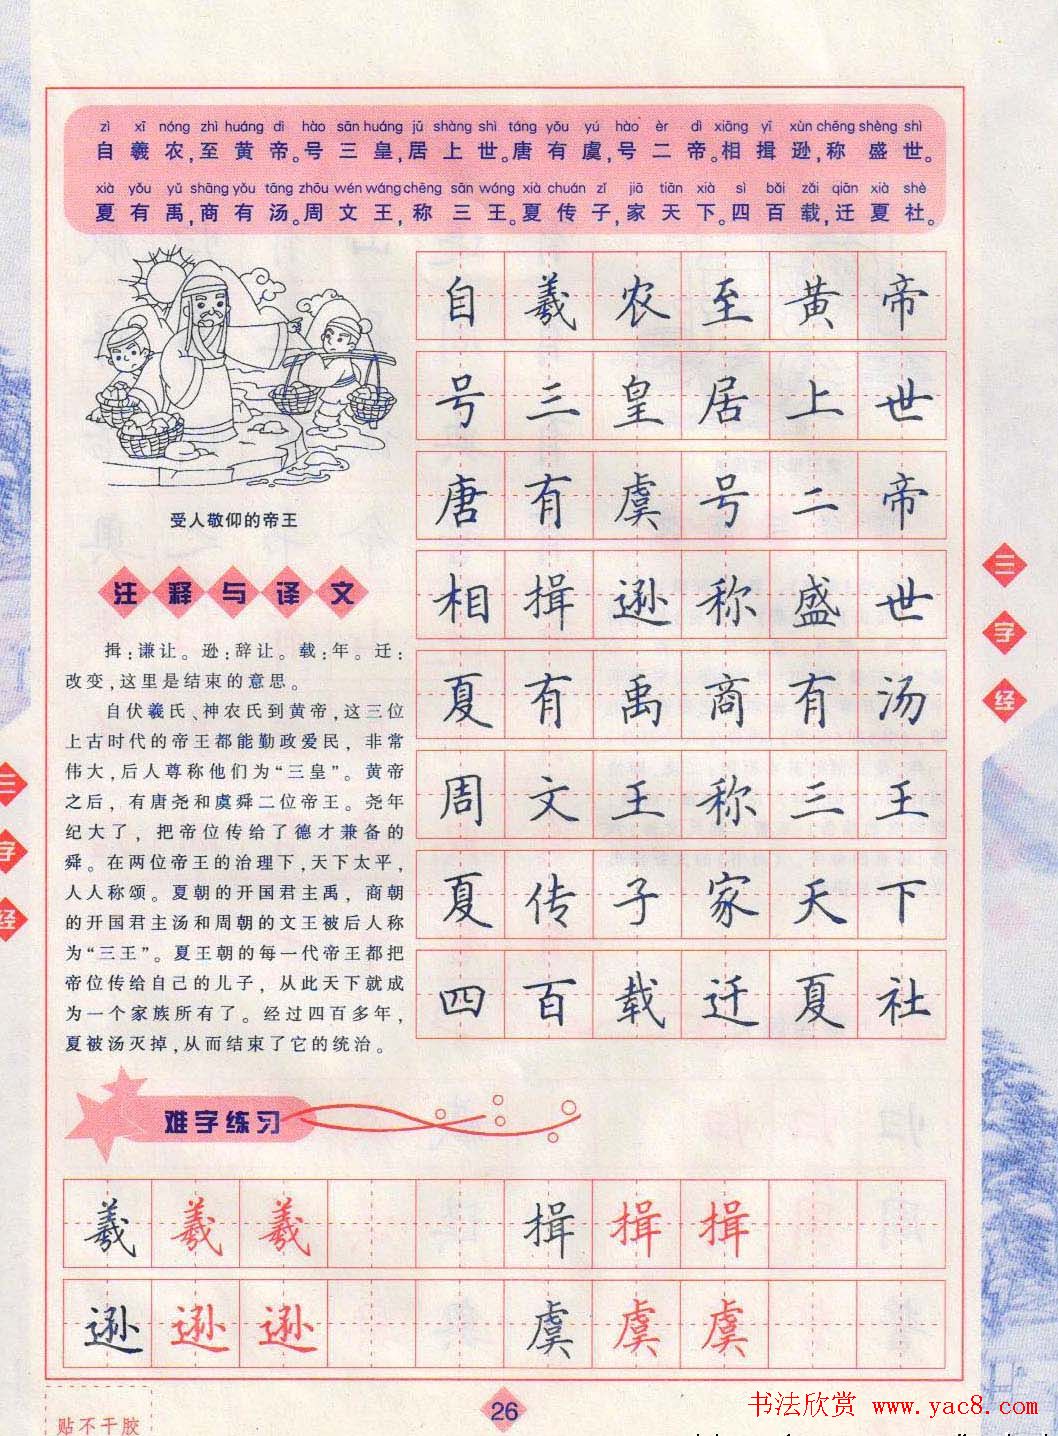 zì xī nóng zhì huáng dì hào sān huáng jū shàng shì táng yǒu yú hào èr dì xiāng yī xùn chēng shèng shì
自羲农,至黄帝。号三皇,居上世。唐有虞,号二帝。相揖逊,称盛世。
xià yǒu yǔ shāng yǒu tāng zhōu wén wáng chēng sān wáng xià chuán zǐ jiā tiān xià sì bǎi zǎi qiān xià shè
夏有禹,商有汤。周文王,称三王。夏传子,家天下。四百载,迁夏社。
受人敬仰的帝王
注释与译文
揖:谦让。逊:辞让。载:年。迁:
改变,这里是结束的意思。
自伏羲氏、神农氏到黄帝,这三位
上古时代的帝王都能勤政爱民,非常
伟大,后人尊称他们为“三皇”。黄帝
之后,有唐尧和虞舜二位帝王。尧年
纪大了,把帝位传给了德才兼备的
舜。在两位帝王的治理下,天下太平,
人人称颂。夏朝的开国君主禹,商朝
的开国君主汤和周朝的文王被后人称
为“三王”。夏王朝的每一代帝王都把
帝位传给自己的儿子,从此天下就成
为一个家族所有了。经过四百多年,
夏被汤灭掉,从而结束了它的统治。
自羲农至黄帝
号三皇居上世
唐有虞号二帝
相揖逊称盛世
夏有禹商有汤
周文王称三王
夏传子家天下
四百载迁夏社
三字经
三字经
难字练习
羲羲羲 揖揖揖
逊逊逊 虞虞虞
贴不干胶
26
书法欣赏 www.yac8.com